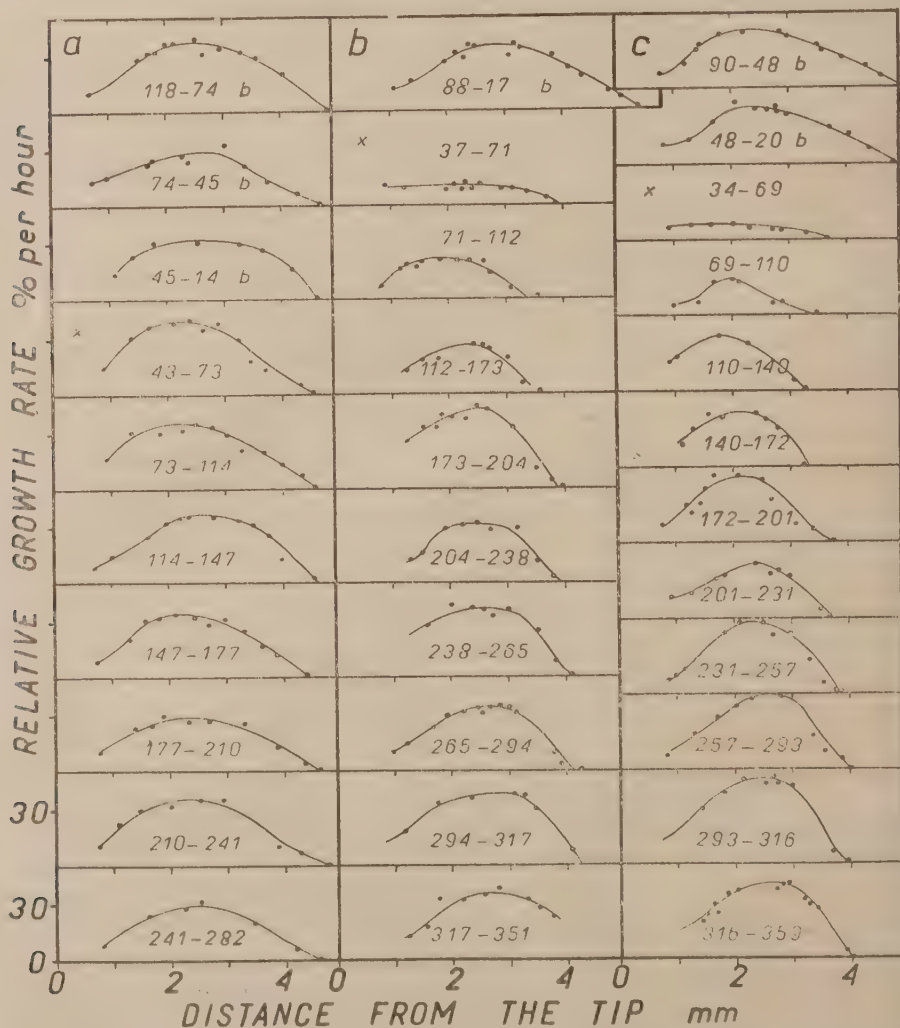 RELATIVE GROWTH RATE % per hour
a
118-74 b
74-45 b
45-14 b
x
43-73
73-114
114-147
147-177
177-210
30
210-241
30
241-282
0
b
88-17 b
x
37-71
71-112
112-173
173-204
204-238
238-265
265-294
294-317
317-351
c
90-48 b
48-20 b
x
34-69
69-110
110-140
140-172
172-201
201-231
231-257
257-293
293-316
0 2 4 0 2 4 0 2 4
DISTANCE FROM THE TIP mm